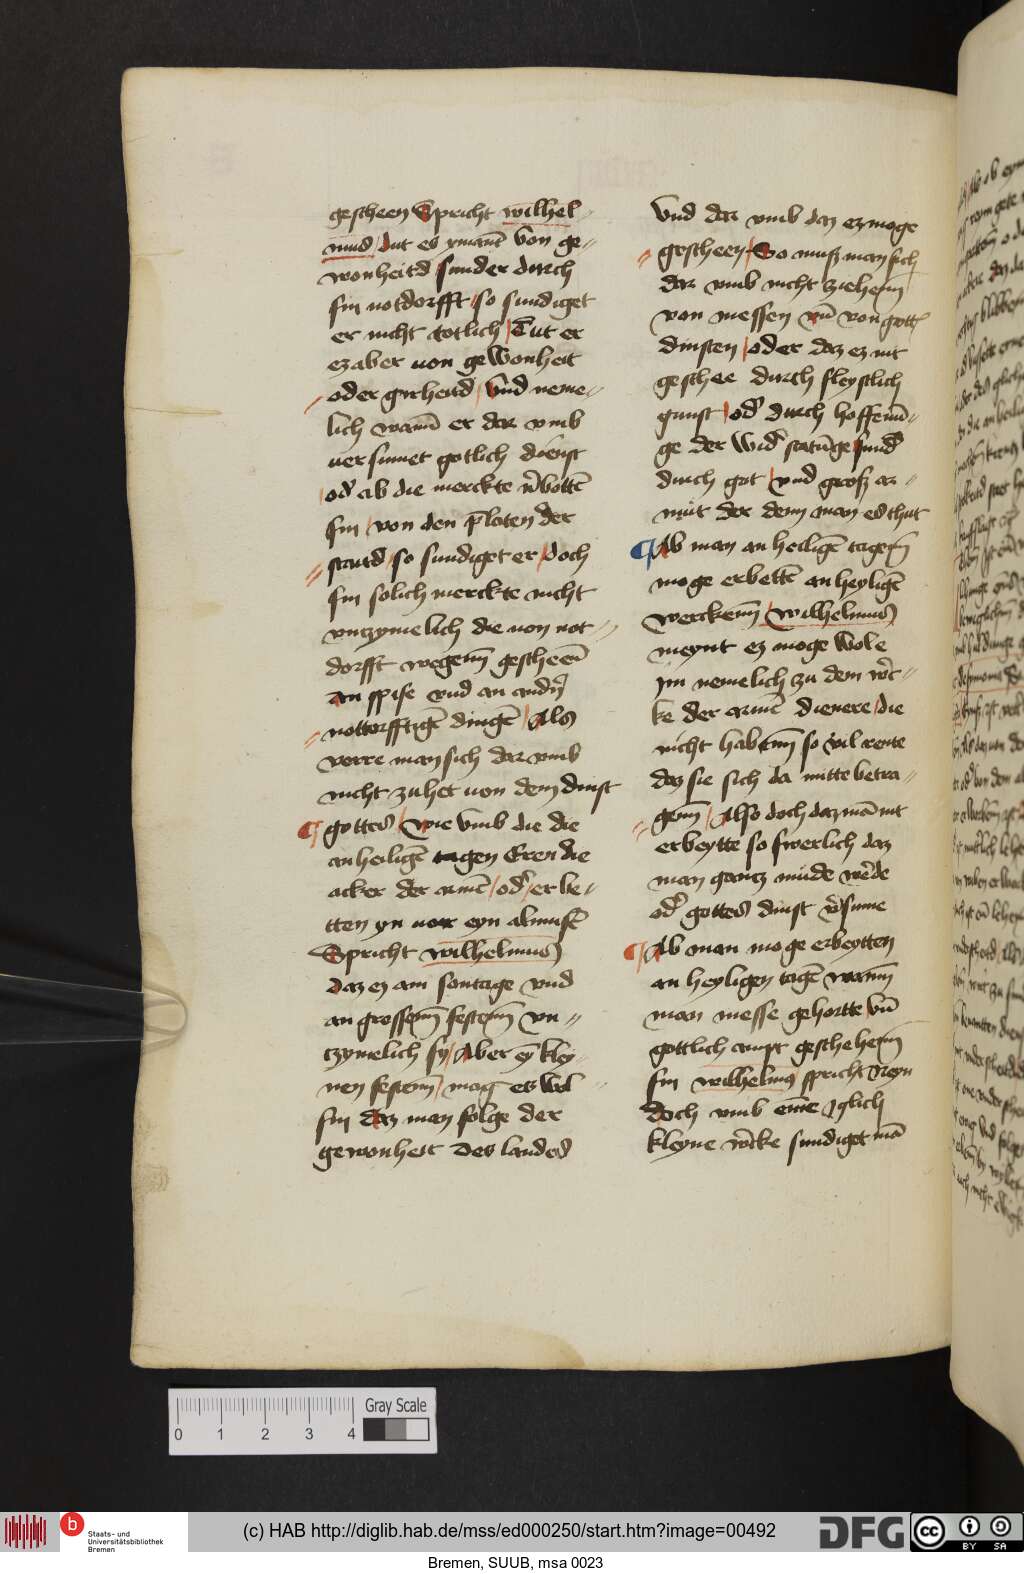 gescheen Spricht wilhel-
mus / dut es ymãt von ge-
wonheitd sunder durch
sin notdorfft / so sundiget
er nicht totlich / Tut er
ez aber uon gewonheit
oder gyrheitd / Vnd neme-
lich wañ er dar vmb
uersumet gotlich dienst
/ od' ab die merckte v̉botte̅
sin / von den p̅laten der
statd / so sundiget er / doch
sin solich merckte nicht
vntzymelich die uon not-
dorfft wegem̅ gescheen̅
an spise vnd an andn̉
nottorfftige̅ dinge̅ / Als
verre man sich dar vmb
nicht zuhet uon dem dinst
gottes / wie vmb die die
an heilige̅ tagen Eren die
acker der arme̅ / od' / erbe-
tten yn uor eyn almuse̅
Spricht wilhelmus
daz ez am sontage vnd
an grossem̅ festem̅ vn-
tzymelich sy / Aber ey̅ kley-
nen festem̅ / mag es wol
sin daz man folge der
gewonheit des landes
Vnd dar vmb daz ez moge
gescheen / So muß man sich
dar vmb nicht ziehem̅
von messen vn̅ von gott'
dinsten / oder daz ez nit
geschee durch fleyslich
gunst / od' durch hoffenu̅-
ge der wid' statu̅ge / sund'
durch got / vnd groß ar-
mut der denn man es thut
Ab man an heilige̅ tagem̅
moge erbette̅ an heylige̅
werckem̅ / wilhelmus
meynt ez moge wole
sin nemelich zu dem w̉r-
ke der arme̅ dienere / die
nicht habem̅ so vil rente
daz sie sich da mitte betra-
gem̅ / Also doch daz ma̅ nit
erbeytte so swerlich daz
man gantz mude w̉de
od' gottes dinst v̉sume
Ab man moge erbeytten
an heyligen tage̅ wann̅
man messe gehortte / vn̅
gottlich ampt geschehem̅
sin wilhelmus spricht Neyn
doch vmb eine yglich
kleyne w̉cke sundiget ma̅
0 1 2 3 4
Gray Scale
b
Staats- und
Universitätsbibliothek
Bremen
(c) HAB http://diglib.hab.de/mss/ed000250/start.htm?image=00492
DFG
cc BY SA
Bremen, SUUB, msa 0023